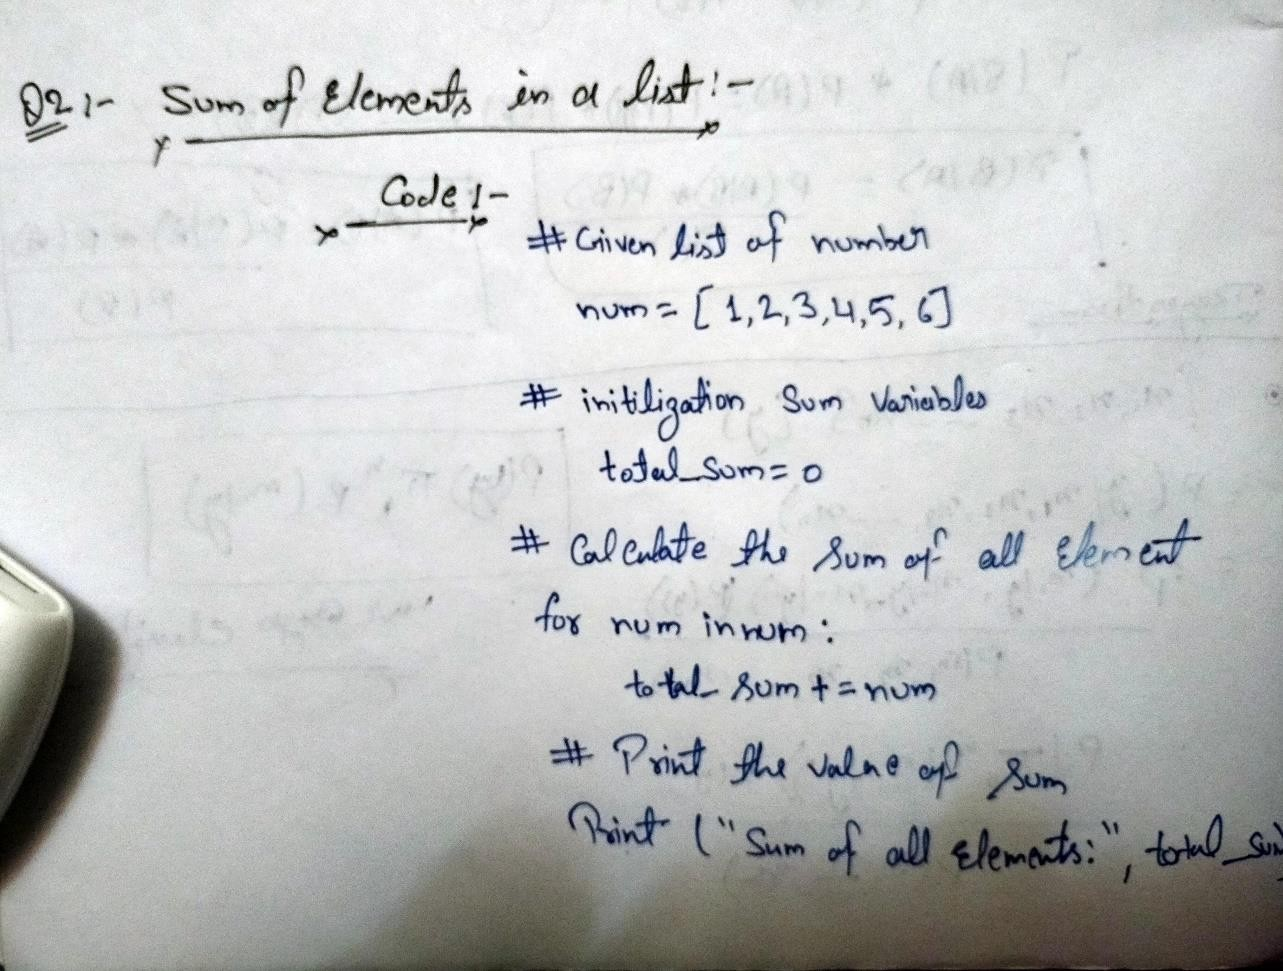 Q2:- Sum of Elements in a list:-
Code:-
# Given list of number
num = [1,2,3,4,5,6]
# initilization Sum Variables
total_sum = 0
# Calculate the Sum of all Element
for num in num:
total_sum += num
# Print the value of Sum
Print ("Sum of all Elements:", total_sum